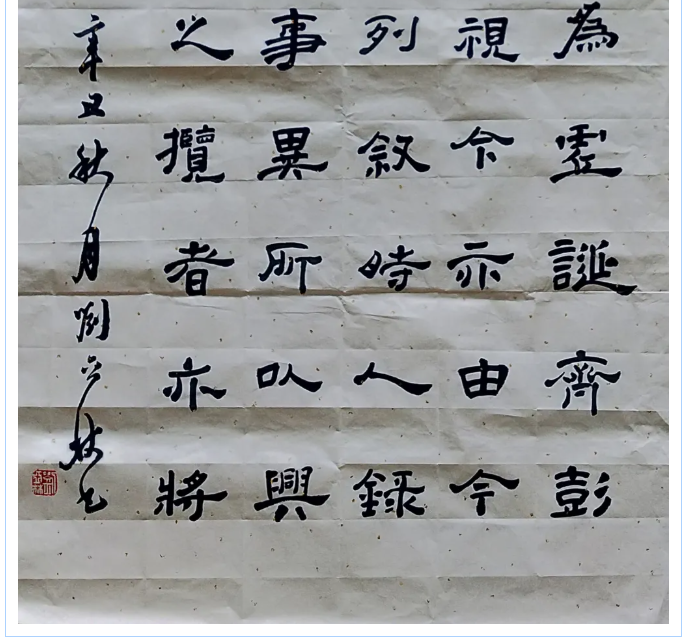 為虛誕齊彭
視今亦由今
列叙時人錄
事異所以興
之攬者亦將
辛丑秋月劉林书